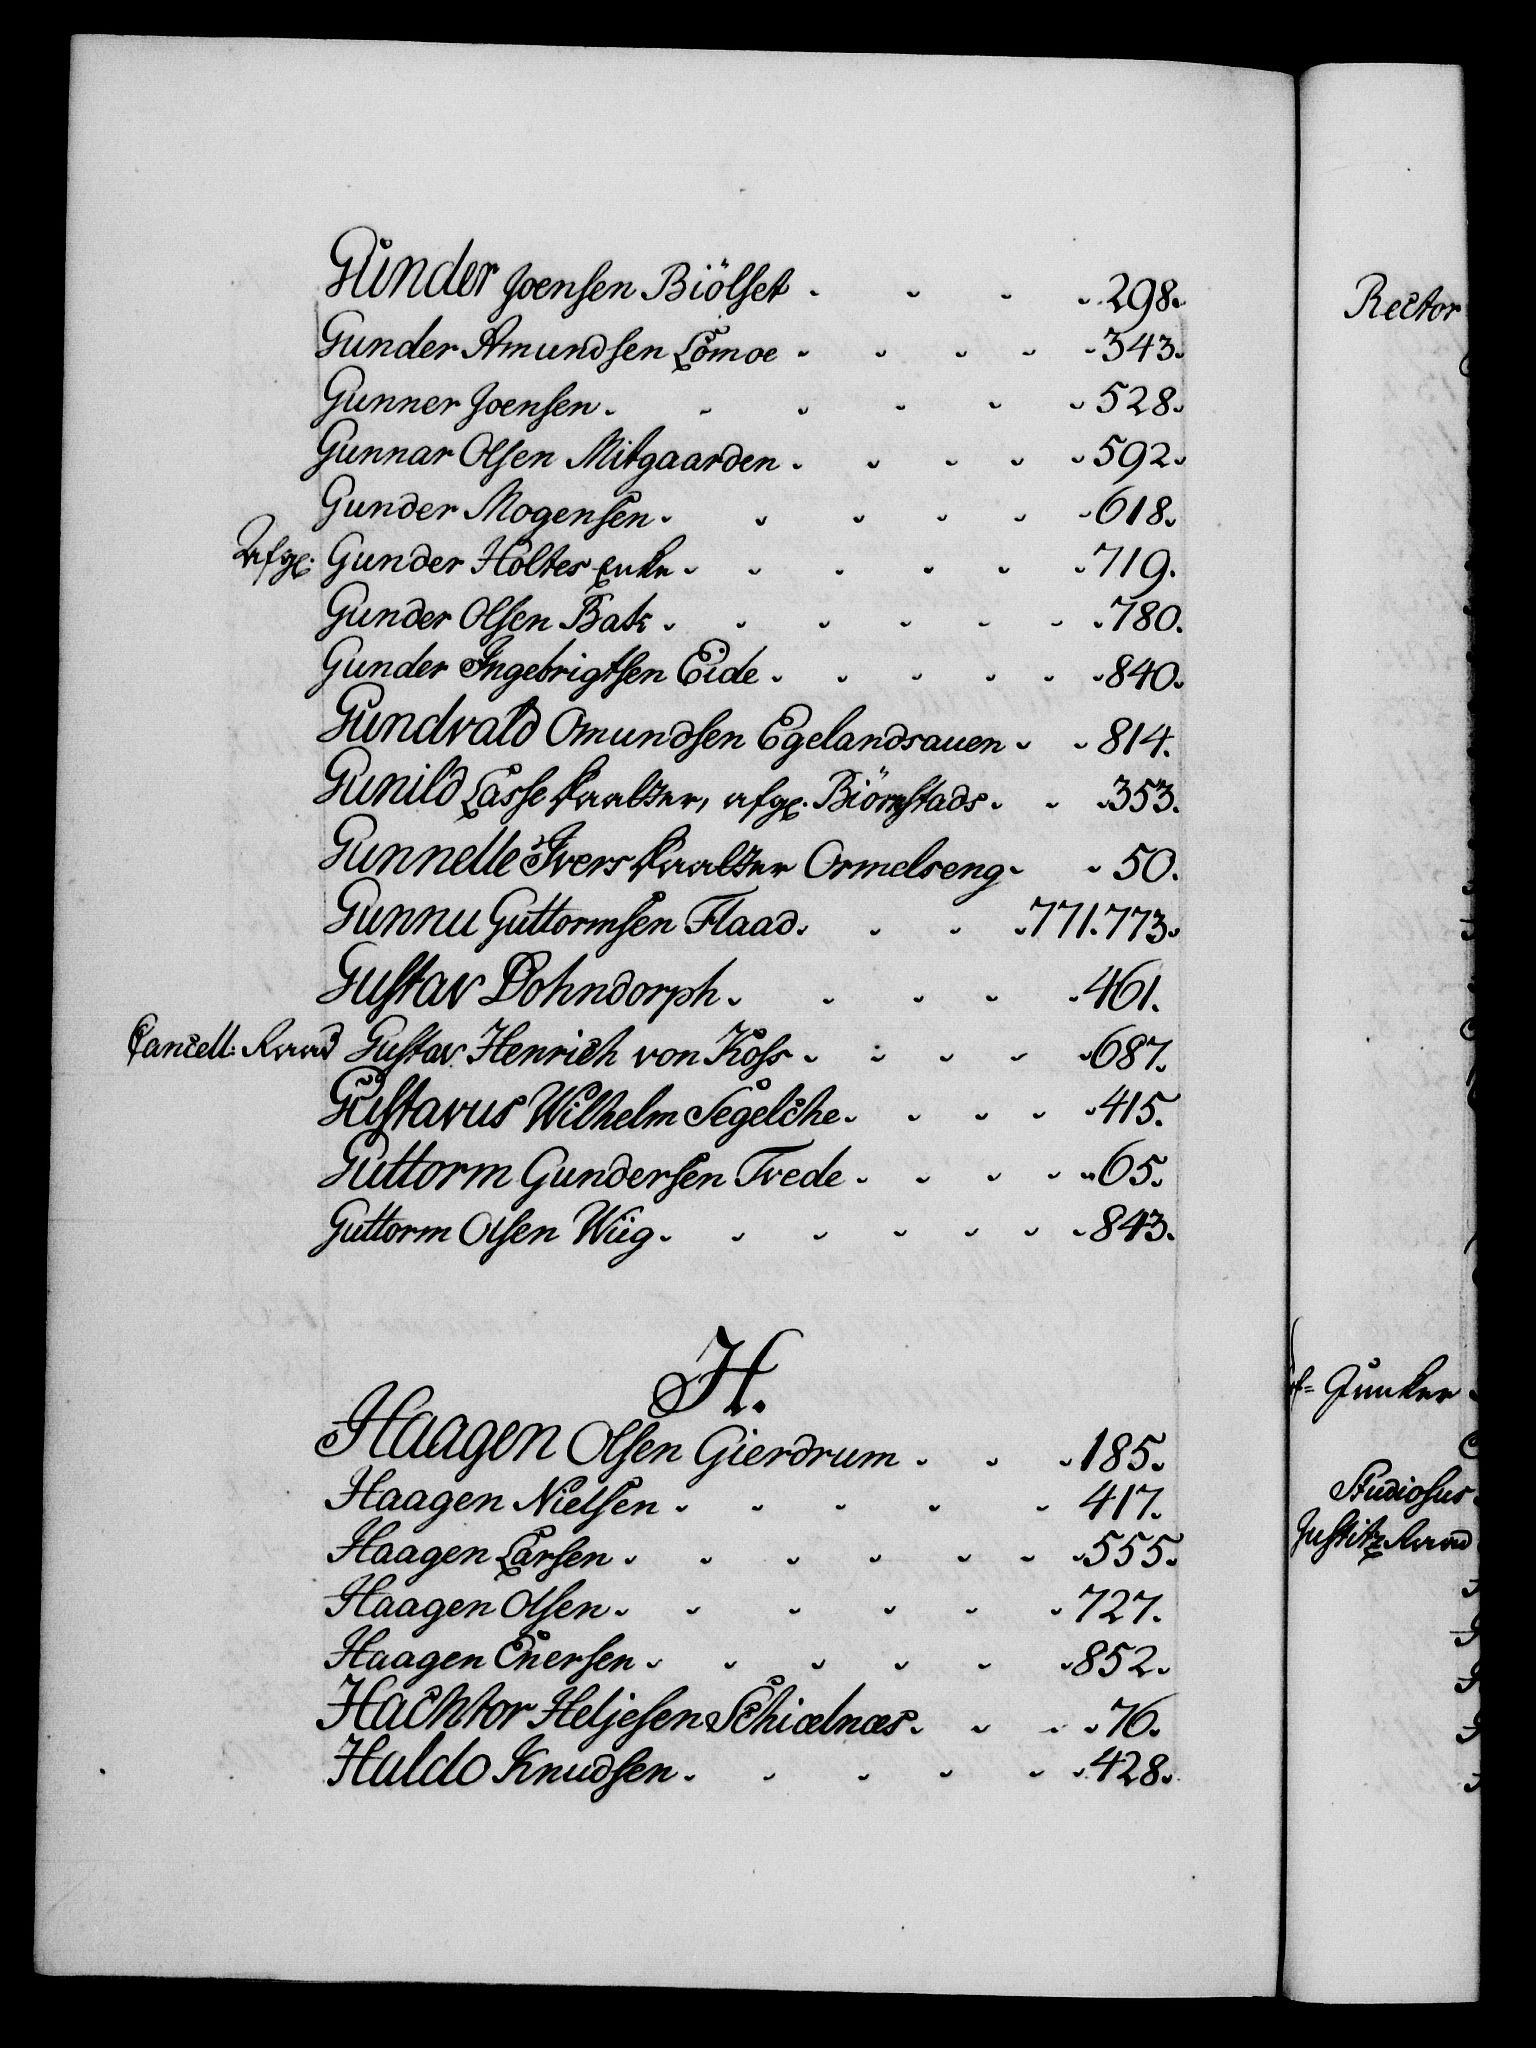 Gunder Joensen Biölset - - - - 298.
Gunder Amundsen Lömoe - - - - - 343.
Gunner Joensen. - - - - - 528.
Gunnar Olsen Mitgaarden - - - - - 592.
Gunder Mogensen - - - - - - 618.
Afg: Gunder Holtes Enke - - - - - - 719.
Gunder Olsen Bak - - - - - - - 780.
Gunder Ingebrigtsen Eide - - - - - - 840.
Gundvald Omundsen Egelandsauen - - 814.
Gunild Lasse Daatter, afg: Biörnstads - - - 353.
Gunnelle Ivers Daatter Ormelseng - - 50.
Gunnu Guttormsen Flaad - - - - 771. 773.
Gustav Dohndorph - - - - - 461.
Cancell: Raad Gustav Henrich von Koss - - - - - 687.
Gustavus Wilhelm Segelche - - - - - 415.
Guttorm Gundersen Tvede - - - - - 65.
Guttorm Olsen Wiig - - - - - - - 843.
H.
Haagen Olsen Gierdrum - - - 185.
Haagen Nielsen - - - - - 417.
Haagen Larsen - - - - - - - 555.
Haagen Olsen - - - - - - 727.
Haagen Enersen - - - - - - 852.
Hachtor Heljesen Schiælnæs - - - - 76.
Haldo Knudsen - - - - - - 428.
Rector
Junker
Studiosus
Justitz Raad